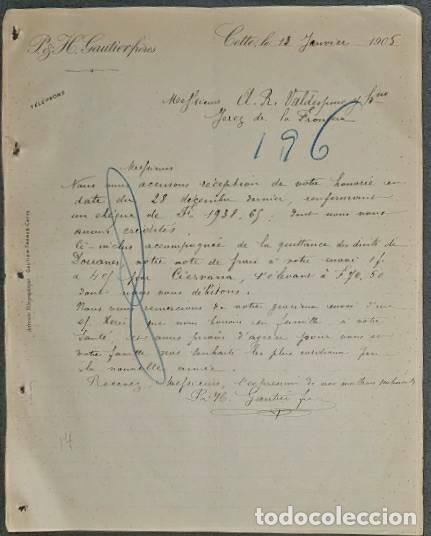 P. & H. Gautier frères
Cette, le 13 Janvier 1905
TÉLÉPHONE
Messieurs A. R. Valdespino y Hno
Jerez de la Frontera
196
Messieurs
Nous vous accusons réception de votre honorée en
date du 28 décembre dernier, renfermant
un chèque de Fr. 1938,65, dont nous vous
avons crédités.
Ci-inclus accompagnée de la quittance des droits de
Douanes, notre note de frais à votre envoi
à 4 Ciervana, s'élevant à F 70,50
dont nous vous débitons.
Nous vous remercions de votre gracieux envoi d'une
Xérès que nous boirons en famille à votre
santé, vous prions d'agréer pour vous et
votre famille nos souhaits les plus pour
la nouvelle année.
Recevez, Messieurs, l'expression de nos meilleurs sentiments
P. & H. Gautier fr
Adresse Télégraphique: Gautier Frères Cette
14
todocoleccion.net